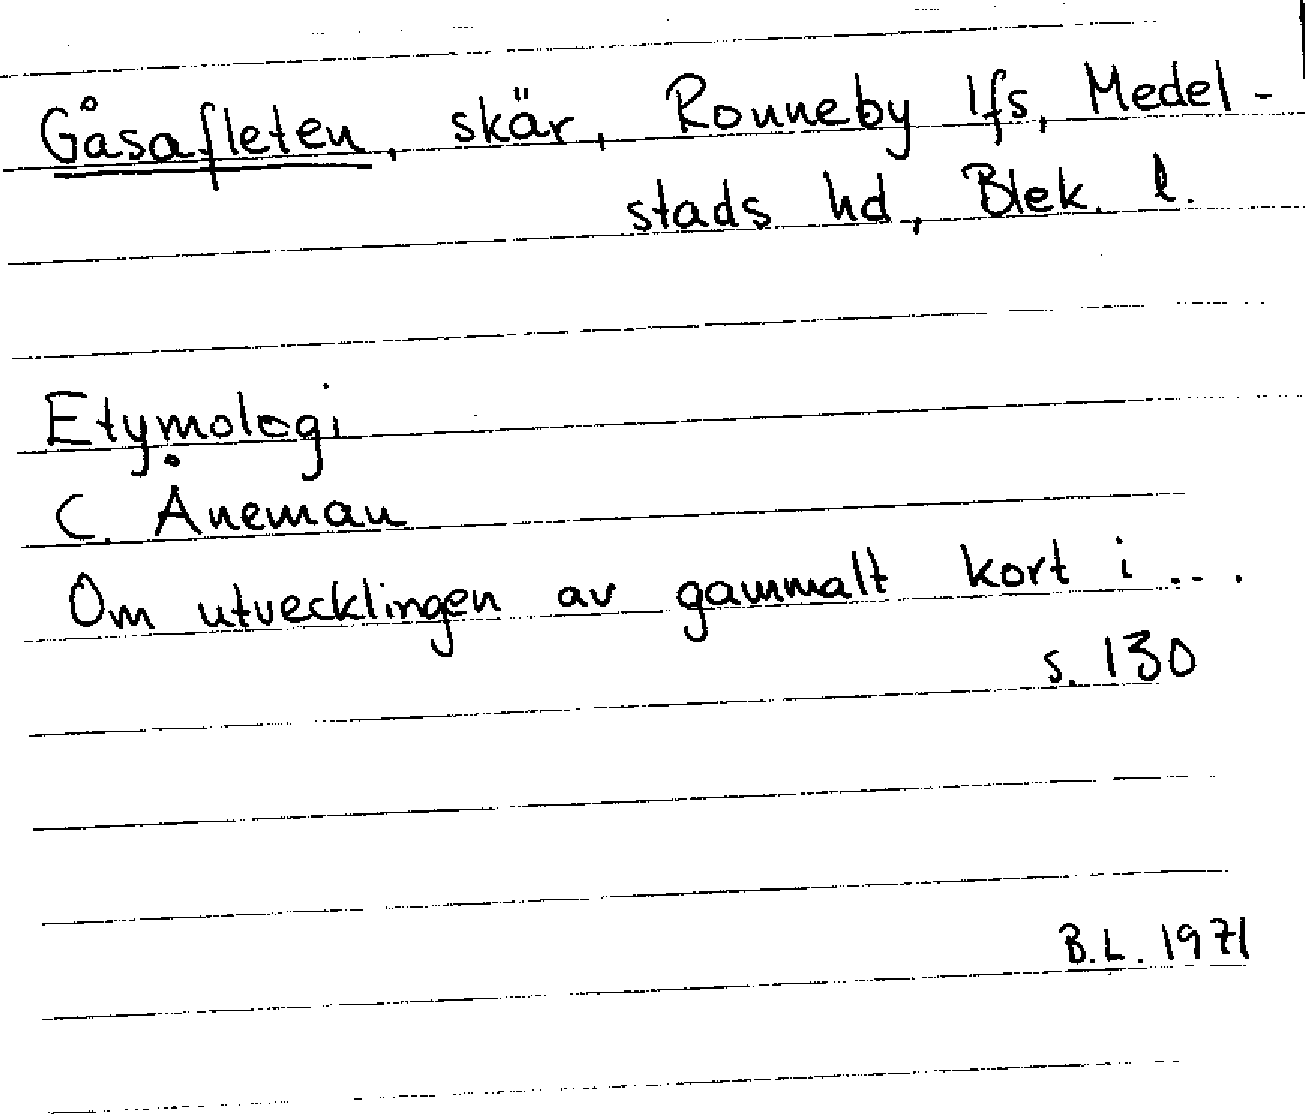 Gåsafleten, skär, Ronneby lfs, Medel-
stads hd, Blek. l.
Etymologi
C. Åneman
Om utvecklingen av gammalt kort i ...
s. 130
B.L. 1971